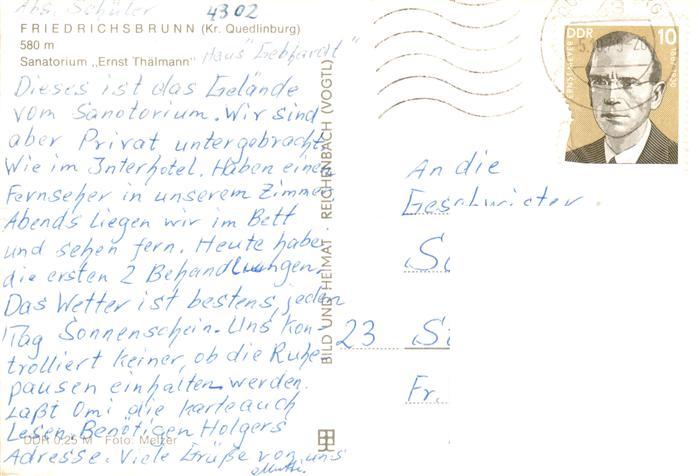 Abs. Schüler
4302
FRIEDRICHSBRUNN (Kr. Quedlinburg)
580 m
Haus "Gebhardt"
Sanatorium „Ernst Thälmann"
Dieses ist das Gelände
vom Sanotorium. Wir sind
aber Privat untergebracht
Wie im Interhotel. Haben einen
Fernseher in unserem Zimmer
Abends Liegen wir im Bett
und sehen fern. Heute haben
die ersten 2 Behandlungen.
Das Wetter ist bestens, jeden
Tag Sonnenschein. Uns kon-
trolliert keiner, ob die Ruhe-
pausen einhalten werden.
Laßt Omi die Karte auch
Lesen. Benötigen Holgers
DDR 0,25 M Foto: Melzer
Adresse. Viele Grüße von uns
BILD UND HEIMAT REICHENBACH (VOGTL)
DDR
10
An die
Geschwister
23
Fr.